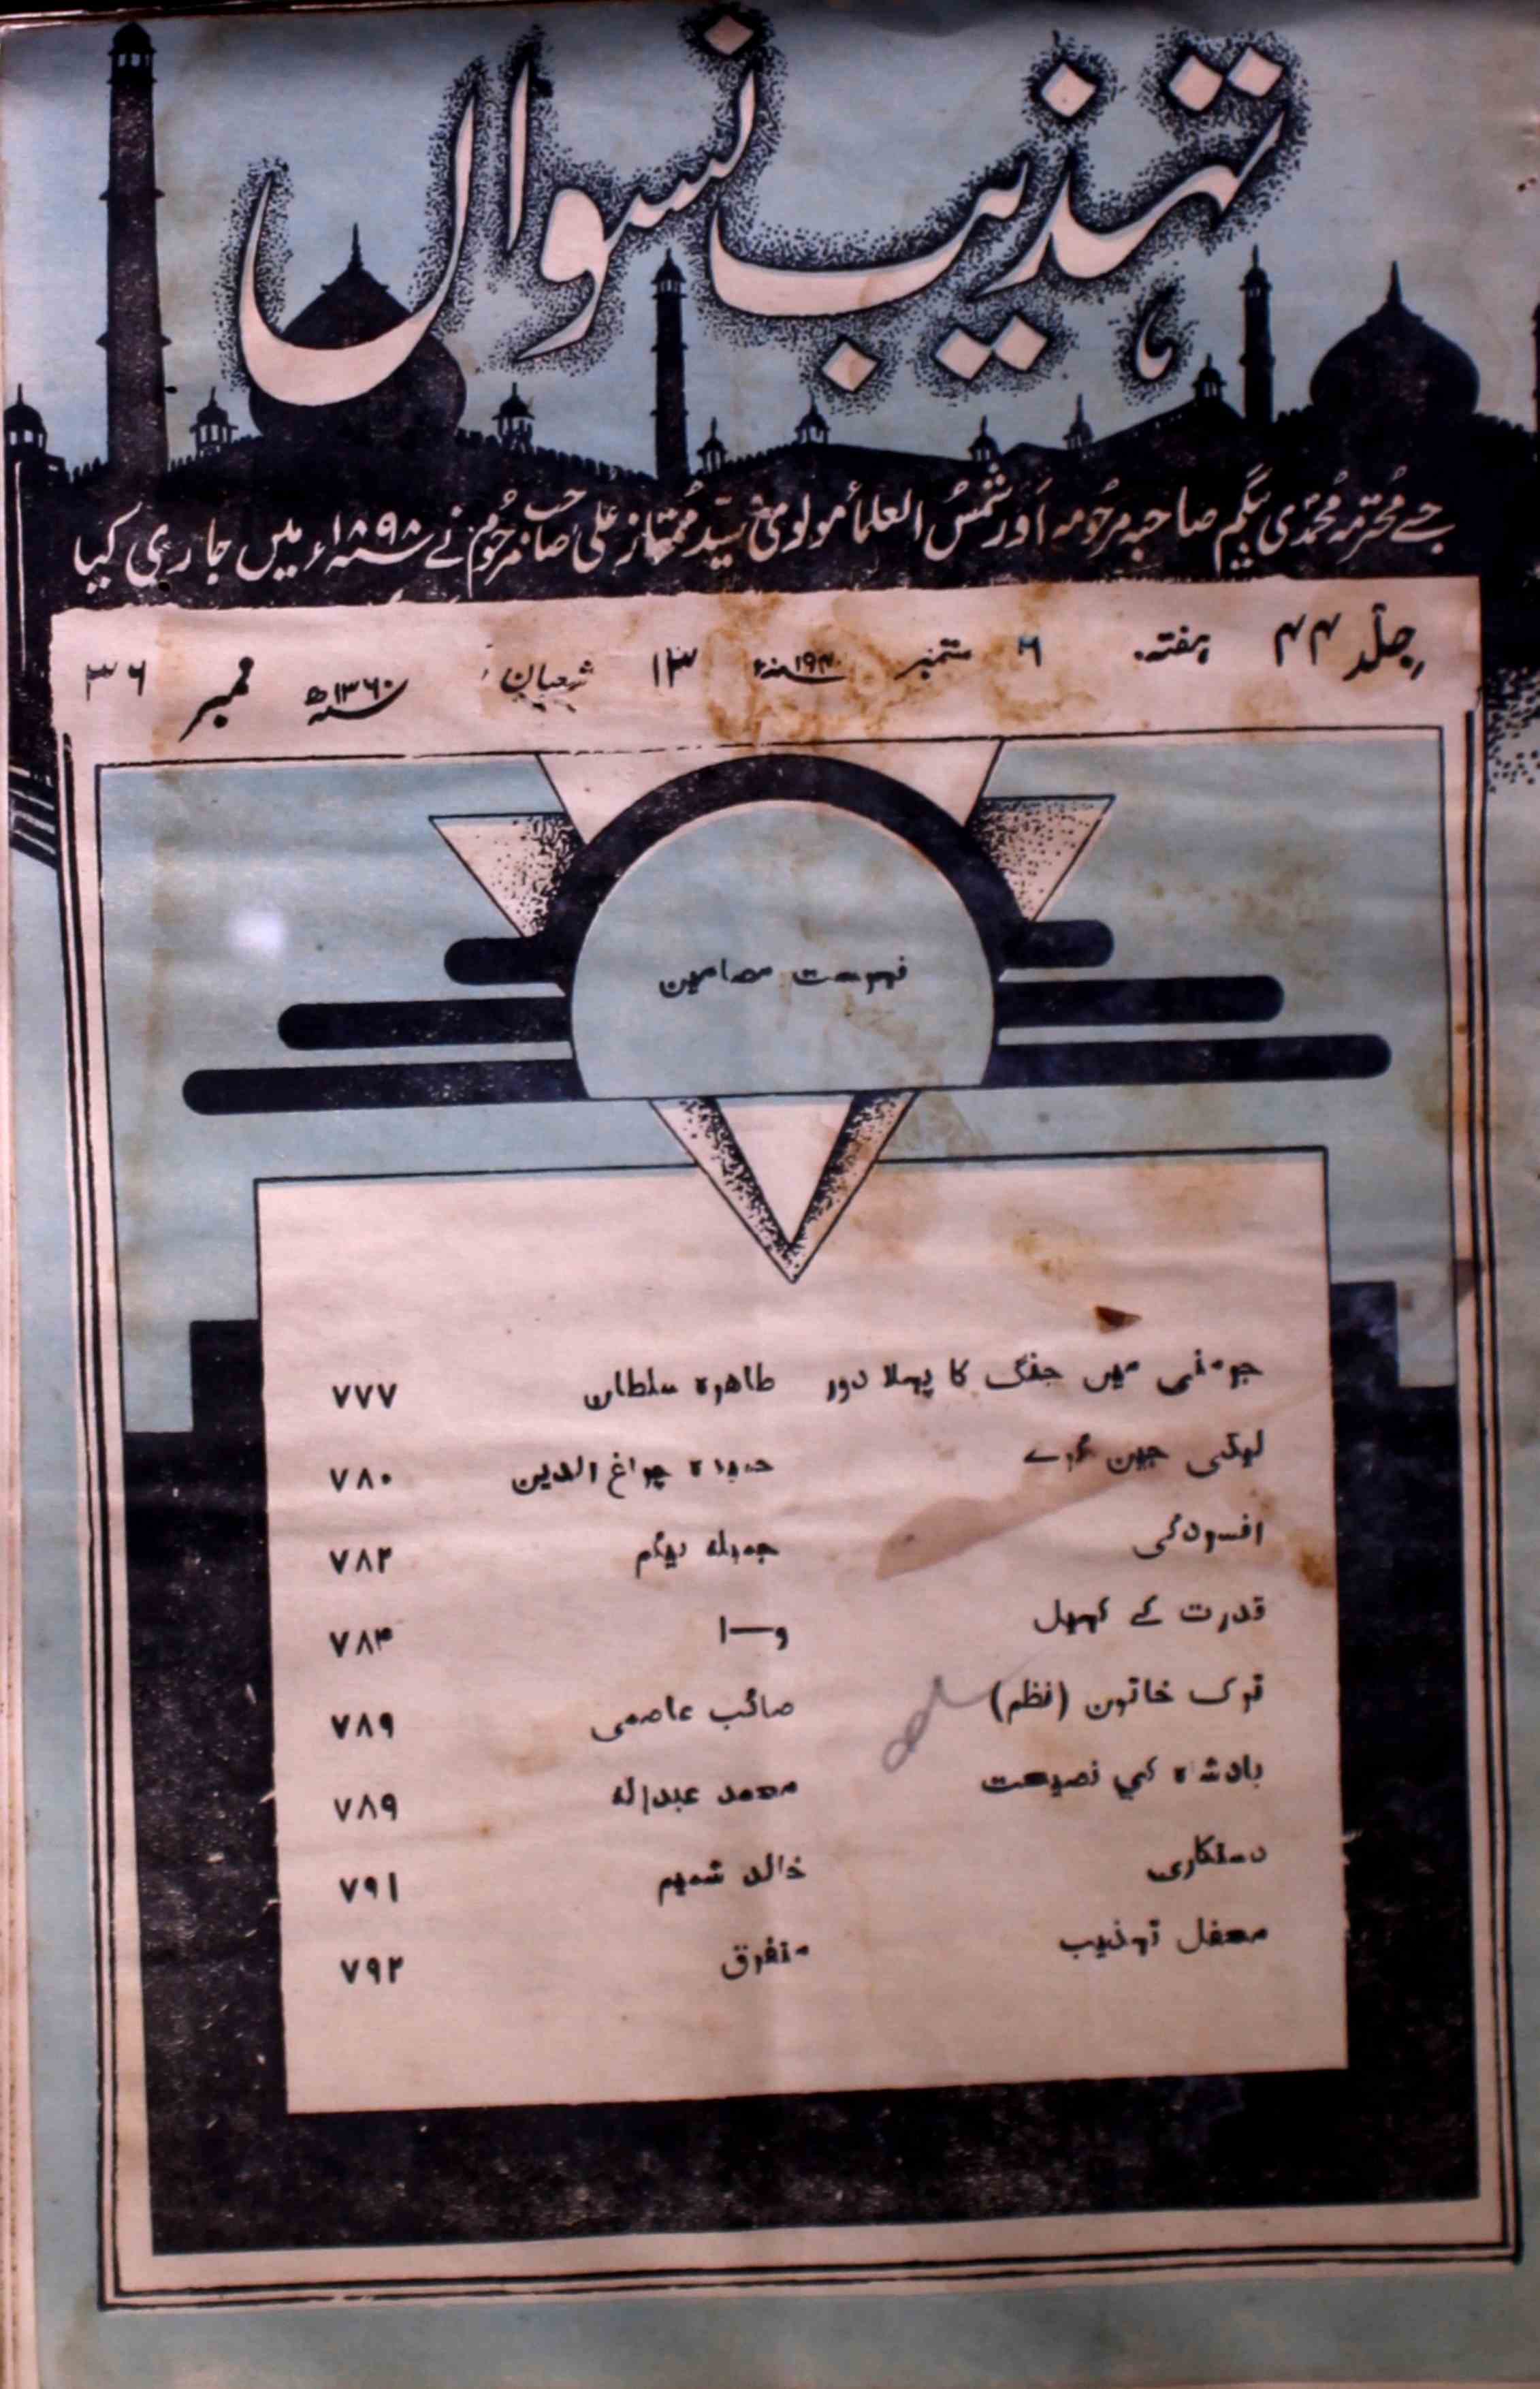 تہذیب نسواں
جسے محترمہ محمدی بیگم صاحبہ مرحومہ اور شمس العلما مولوی سید ممتاز علی صاحب مرحوم نے ۱۸۹۸ء میں جاری کیا
جلد ۴۴ ہفتہ ۶ ستمبر ۱۳ شعبان ۱۳۶۰ھ نمبر ۳۶
فہرست مضامین
جرمنی میں جنگ کا پہلا دور طاہرہ سلطان ۷۷۷
لیڈی جین گرے حمیدہ چراغ الدین ۷۸۰
افسردگی جمیلہ بیگم ۷۸۲
قدرت کے کھیل و—ا ۷۸۴
ترک خاتون (نظم) صائب عاصمی ۷۸۹
بادشاہ کی نصیحت محمد عبداللہ ۷۸۹
دستکاری خالد شمیم ۷۹۱
محفل تہذیب متفرق ۷۹۲